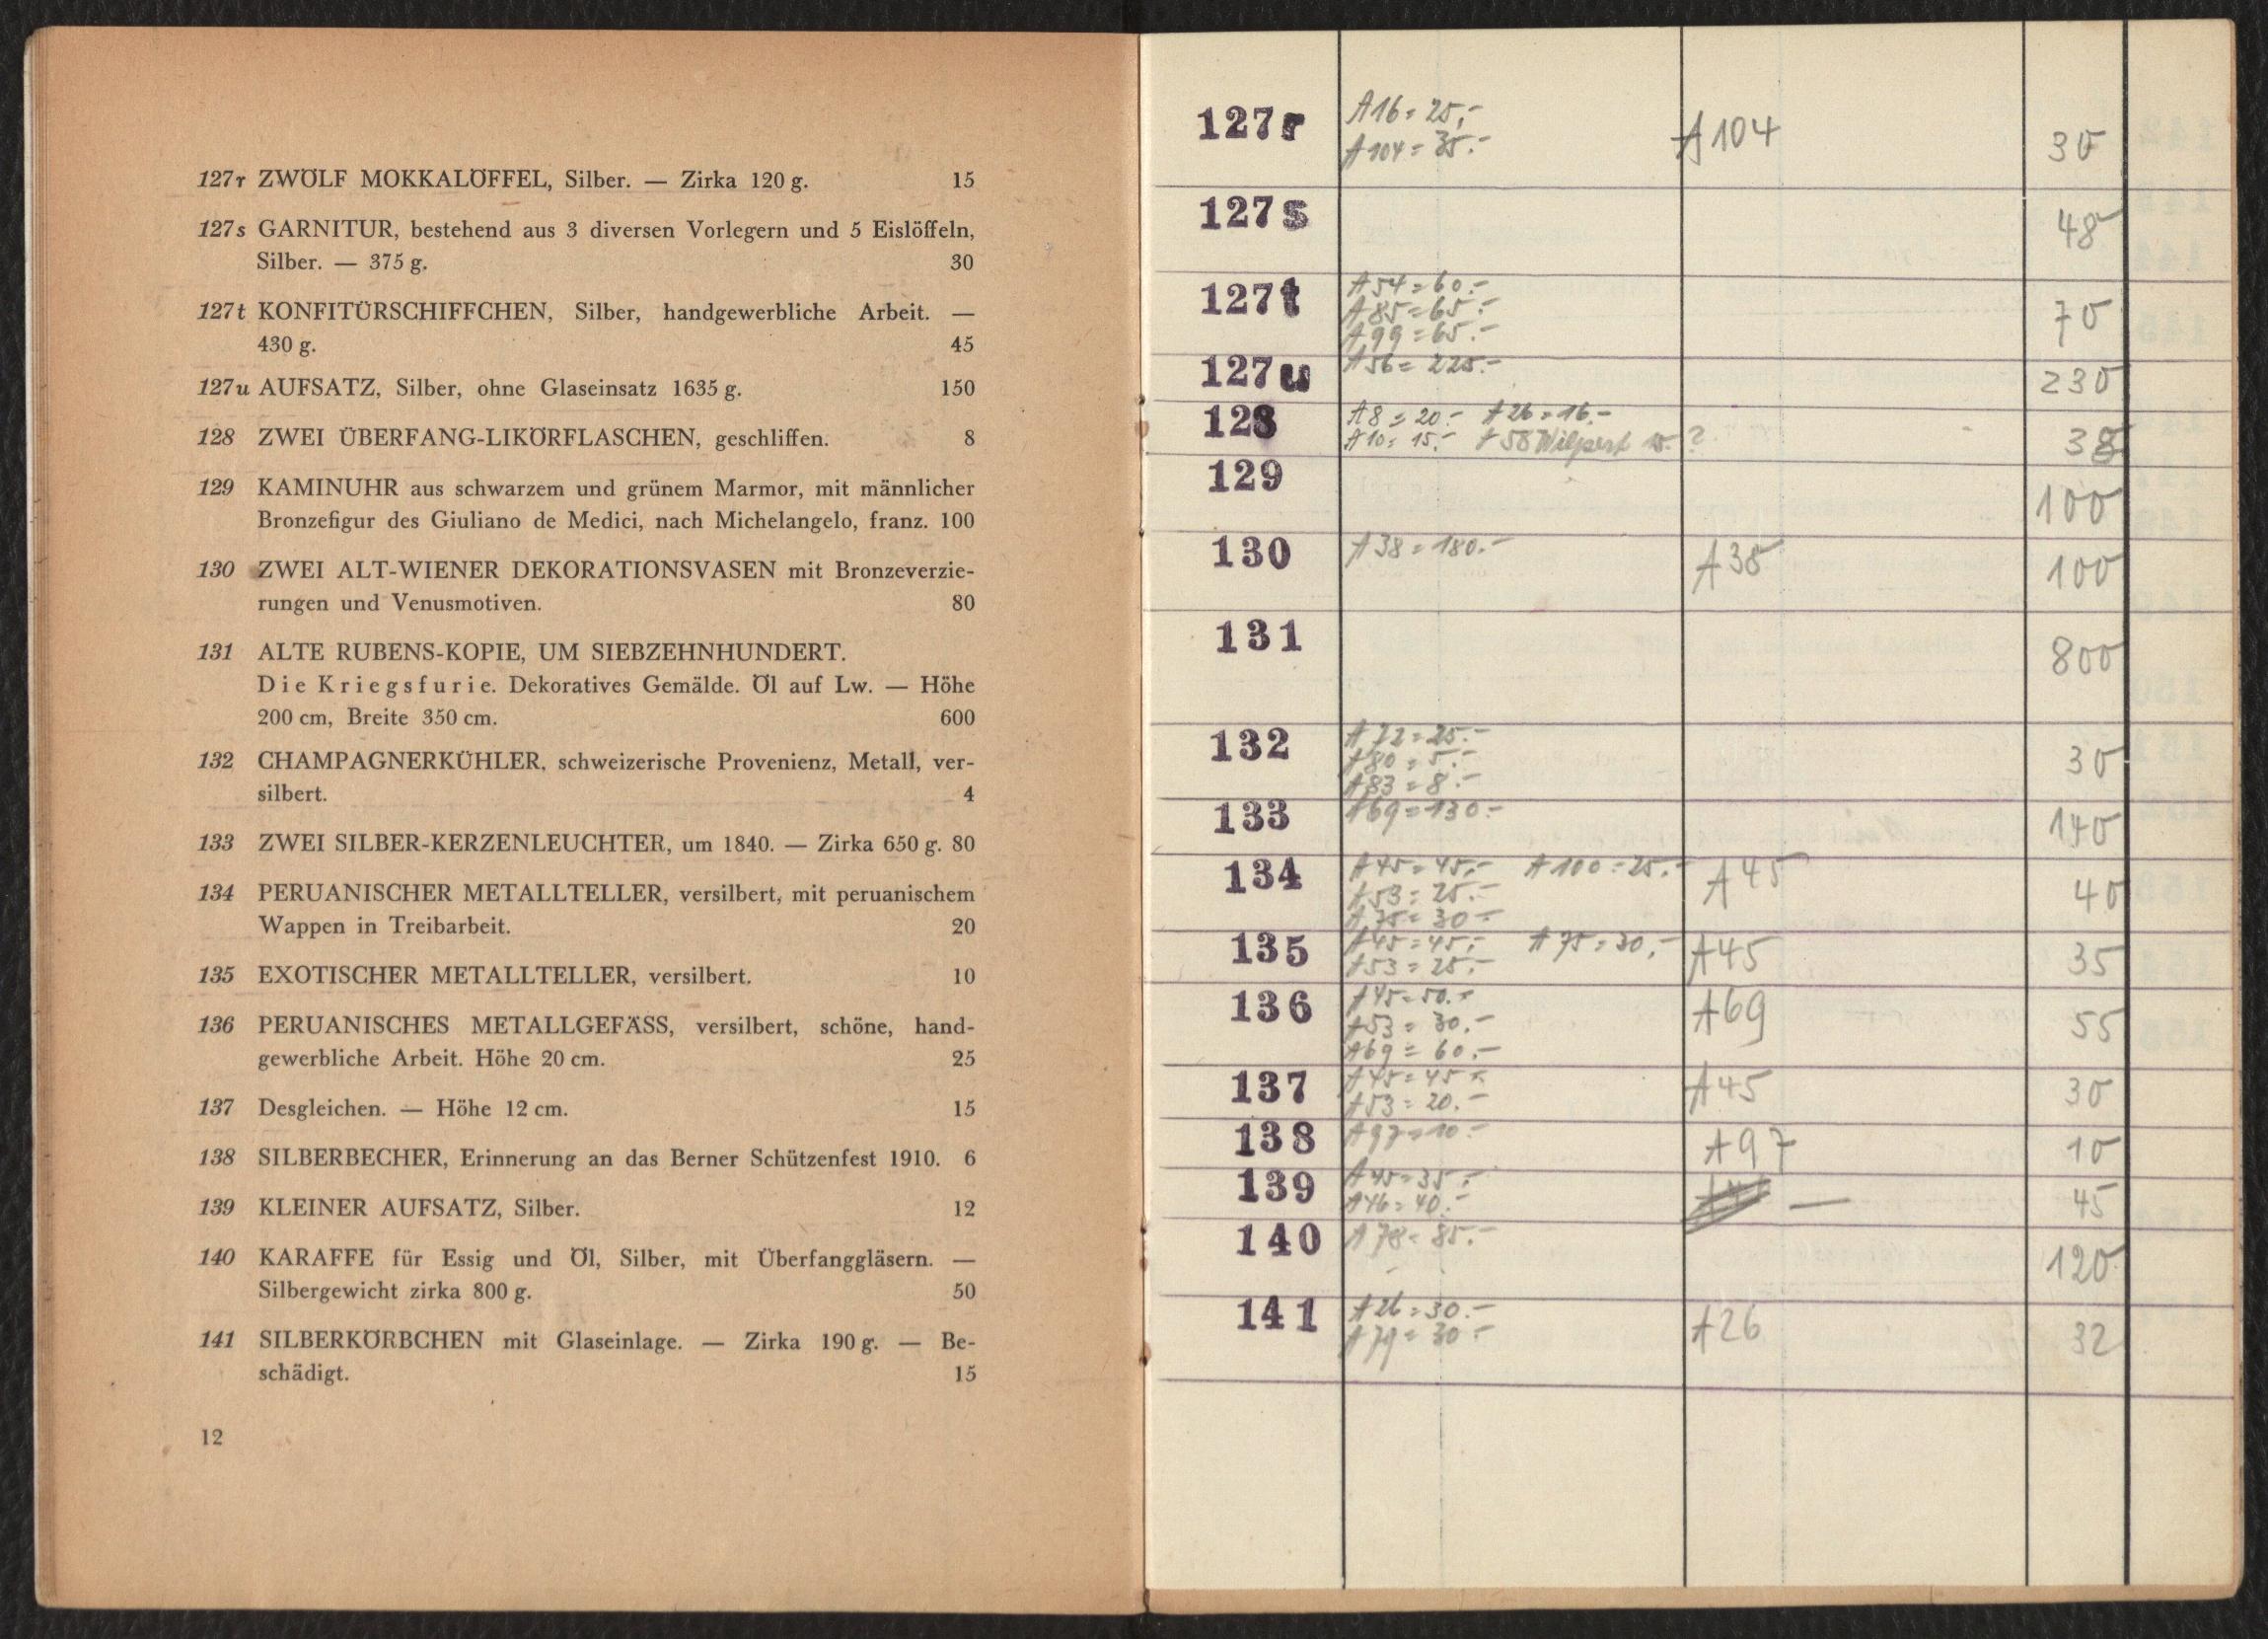 127r ZWÖLF MOKKALÖFFEL, Silber. — Zirka 120 g. 15
127s GARNITUR, bestehend aus 3 diversen Vorlegern und 5 Eislöffeln,
Silber. — 375 g. 30
127t KONFITÜRSCHIFFCHEN, Silber, handgewerbliche Arbeit. —
430 g. 45
127u AUFSATZ, Silber, ohne Glaseinsatz 1635 g. 150
128 ZWEI ÜBERFANG-LIKÖRFLASCHEN, geschliffen. 8
129 KAMINUHR aus schwarzem und grünem Marmor, mit männlicher
Bronzefigur des Giuliano de Medici, nach Michelangelo, franz. 100
130 ZWEI ALT-WIENER DEKORATIONSVASEN mit Bronzeverzie-
rungen und Venusmotiven. 80
131 ALTE RUBENS-KOPIE, UM SIEBZEHNHUNDERT.
Die Kriegsfurie. Dekoratives Gemälde. Öl auf Lw. — Höhe
200 cm, Breite 350 cm. 600
132 CHAMPAGNERKÜHLER, schweizerische Provenienz, Metall, ver-
silbert. 4
133 ZWEI SILBER-KERZENLEUCHTER, um 1840. — Zirka 650 g. 80
134 PERUANISCHER METALLTELLER, versilbert, mit peruanischem
Wappen in Treibarbeit. 20
135 EXOTISCHER METALLTELLER, versilbert. 10
136 PERUANISCHES METALLGEFÄSS, versilbert, schöne, hand-
gewerbliche Arbeit. Höhe 20 cm. 25
137 Desgleichen. — Höhe 12 cm. 15
138 SILBERBECHER, Erinnerung an das Berner Schützenfest 1910. 6
139 KLEINER AUFSATZ, Silber. 12
140 KARAFFE für Essig und Öl, Silber, mit Überfanggläsern. —
Silbergewicht zirka 800 g. 50
141 SILBERKÖRBCHEN mit Glaseinlage. — Zirka 190 g. — Be-
schädigt. 15
12
127r A16 = 25,-
A104 = 35.- A104 30
127s 48
127t A54 = 60.-
A85 = 65.- 70
A99 = 65.-
127u A56 = 225.- 230
128 A8 = 20.- A26 = 16.-
A10 = 15.- A58 ? 38
129 100
130 A38 = 180.- A38 100
131 800
132 A72 = 25.-
A80 = 5.- 30
A83 = 8.-
133 A69 = 130.- 140
134 A45 = 45.- A100 = 25.- A45
A53 = 25.- 40
A75 = 30.-
135 A45 = 45.- A75 = 30.- A45 35
A53 = 25.-
136 A45 = 50.- A69
A53 = 30.- 55
A69 = 60.-
137 A45 = 45.- A45 30
A53 = 20.-
138 A97 = 10.- A97 10
139 A45 = 35.- —
A46 = 40.- 45
140 A78 = 85.- 120
141 A26 = 30.- A26
A79 = 30.- 32